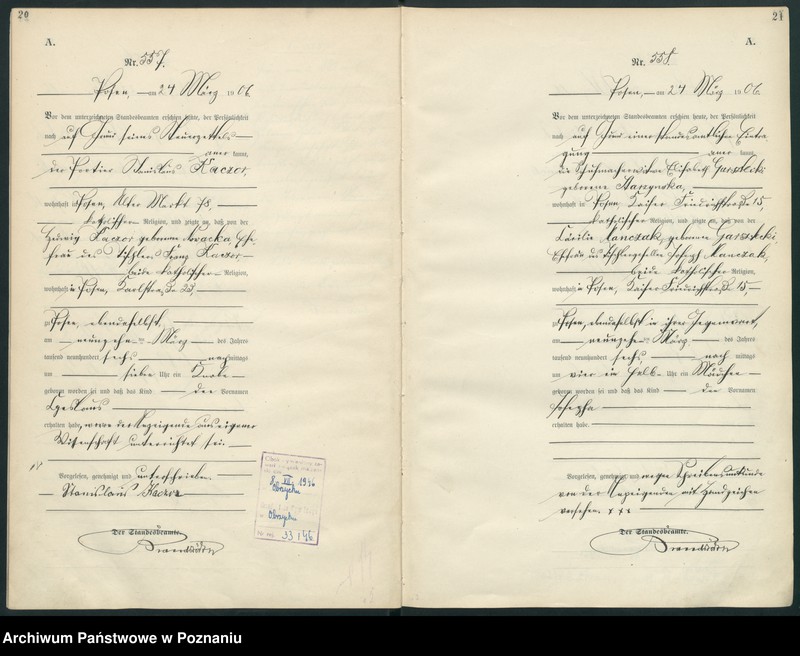 20
A.
Nr. 557.
Posen, am 24 März 1906.
Vor dem unterzeichneten Standesbeamten erschien heute, der Persönlichkeit
nach auf Grund seines
kannt,
der Portier Stanislaus Kaczor,
wohnhaft in Posen, Alter Markt
katholischer Religion, und zeigte an, daß von der
Hedwig Kaczor geborenen Nowacka Ehe-
frau des Franz Kaczor,
beide katholischer Religion,
wohnhaft in Posen,
zu Posen, ebendaselbst,
am neunzehnten März des Jahres
tausend neunhundert sechs nachmittags
um sieben Uhr ein Knabe
geboren worden sei und daß das Kind den Vornamen
Czeslaus
erhalten habe, wovon der Anzeigende aus eigener
Wissenschaft unterrichtet sei.
Vorgelesen, genehmigt und unterschrieben.
Stanislaus Kaczor
Der Standesbeamte.
1946
33 / 46
21
A.
Nr. 558.
Posen, am 24 März 1906.
Vor dem unterzeichneten Standesbeamten erschien heute, der Persönlichkeit
nach auf Grund einer standesamtlichen Eintra-
gung kannt,
die Schuhmacherwitwe Elisabeth Garstecki
geborene
wohnhaft in Posen, Kaiser Friedrichstraße 15,
katholischer Religion, und zeigte an, daß von der
Cäcilie Manczak, geborenen Garstecki,
Ehefrau des Tischlergesellen Joseph Manczak,
beide katholischer Religion,
wohnhaft in Posen, Kaiser Friedrichstraße 15,
zu Posen, ebendaselbst in ihrer Gegenwart,
am neunzehnten März des Jahres
tausend neunhundert sechs, nachmittags
um vier ein halb Uhr ein Mädchen
geboren worden sei und daß das Kind den Vornamen
Josepha
erhalten habe.
Vorgelesen, genehmigt und wegen Schreibensunkunde
von der Anzeigenden mit Handzeichen
versehen. x x x
Der Standesbeamte.
Archiwum Państwowe w Poznaniu